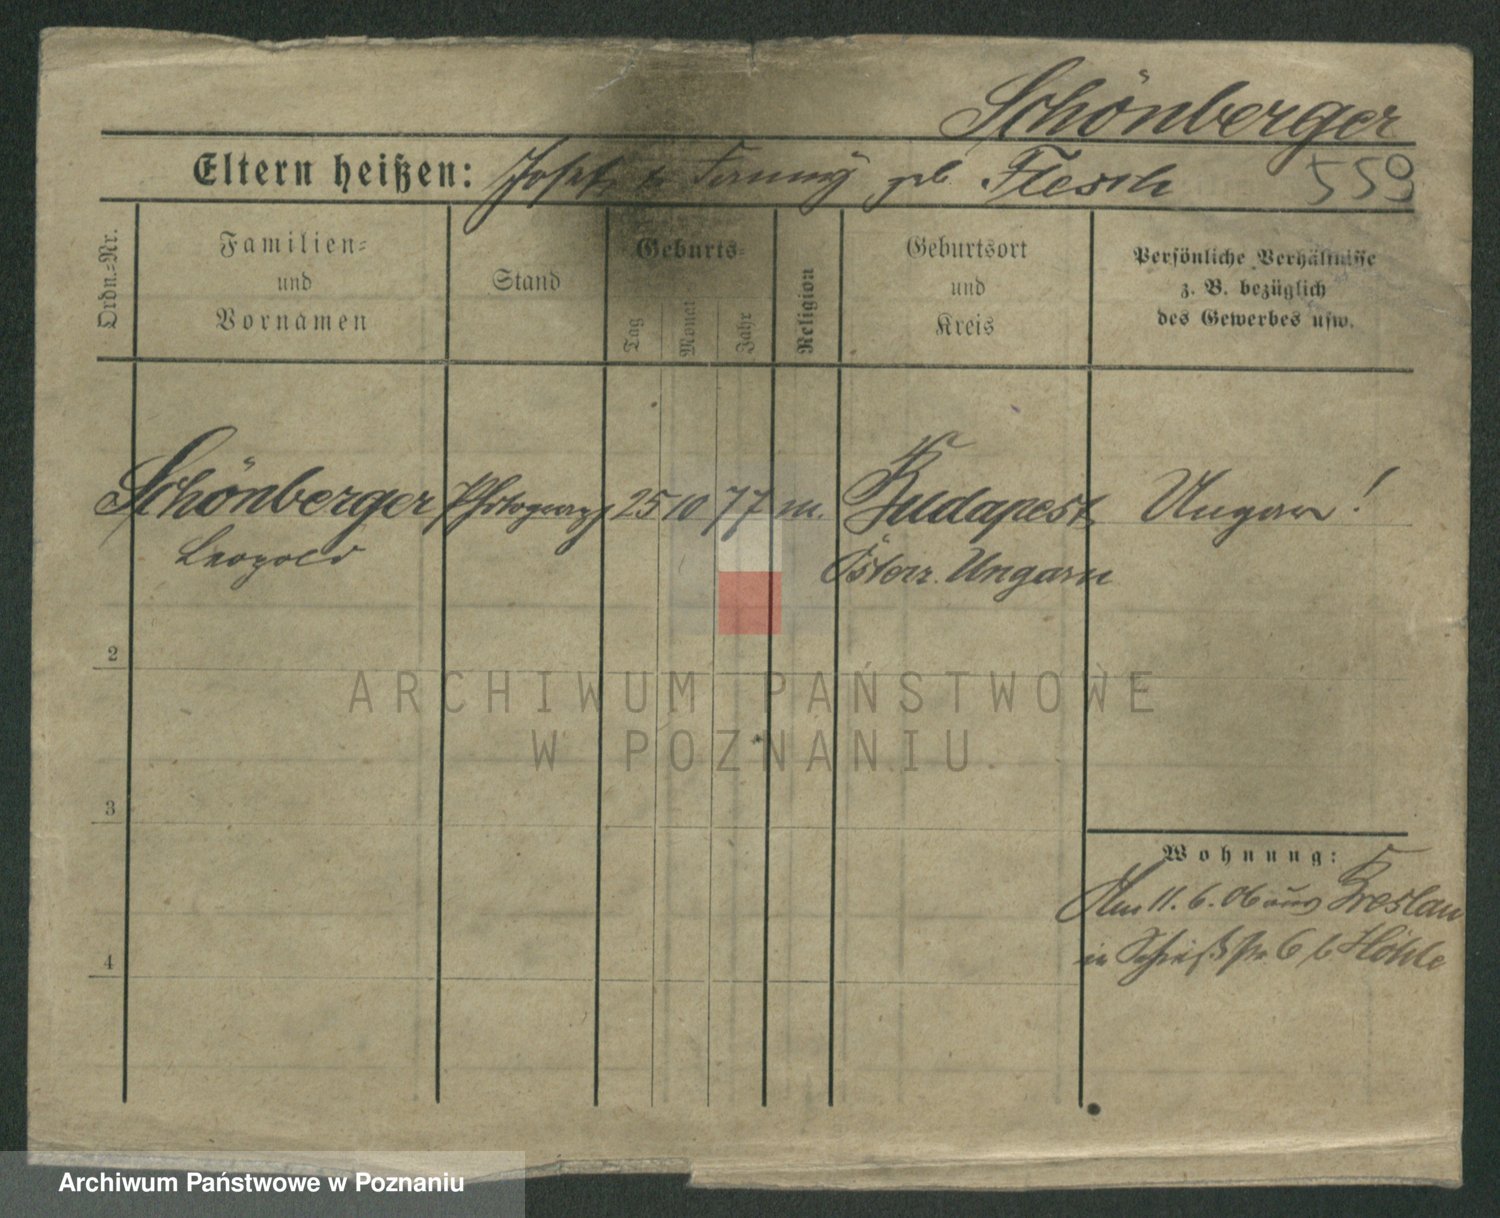 Schönberger
Eltern heißen: Josef u Fanny geb. Flesch
559
Ordn.-Nr.
Familien-
und
Vornamen
Stand
Geburts-
Tag
Monat
Jahr
Religion
Geburtsort
und
Kreis
Persönliche Verhältnisse
z. B. bezüglich
des Gewerbes usw.
Schönberger Photograph 25 10 77 m. Budapest Ungar!
Leopold Österr. Ungarn
2
ARCHIWUM PAŃSTWOWE
W POZNANIU.
3
Wohnung:
Am 11. 6. 06 aus Breslau
in Schießstr 6 b Höhle
4
Archiwum Państwowe w Poznaniu